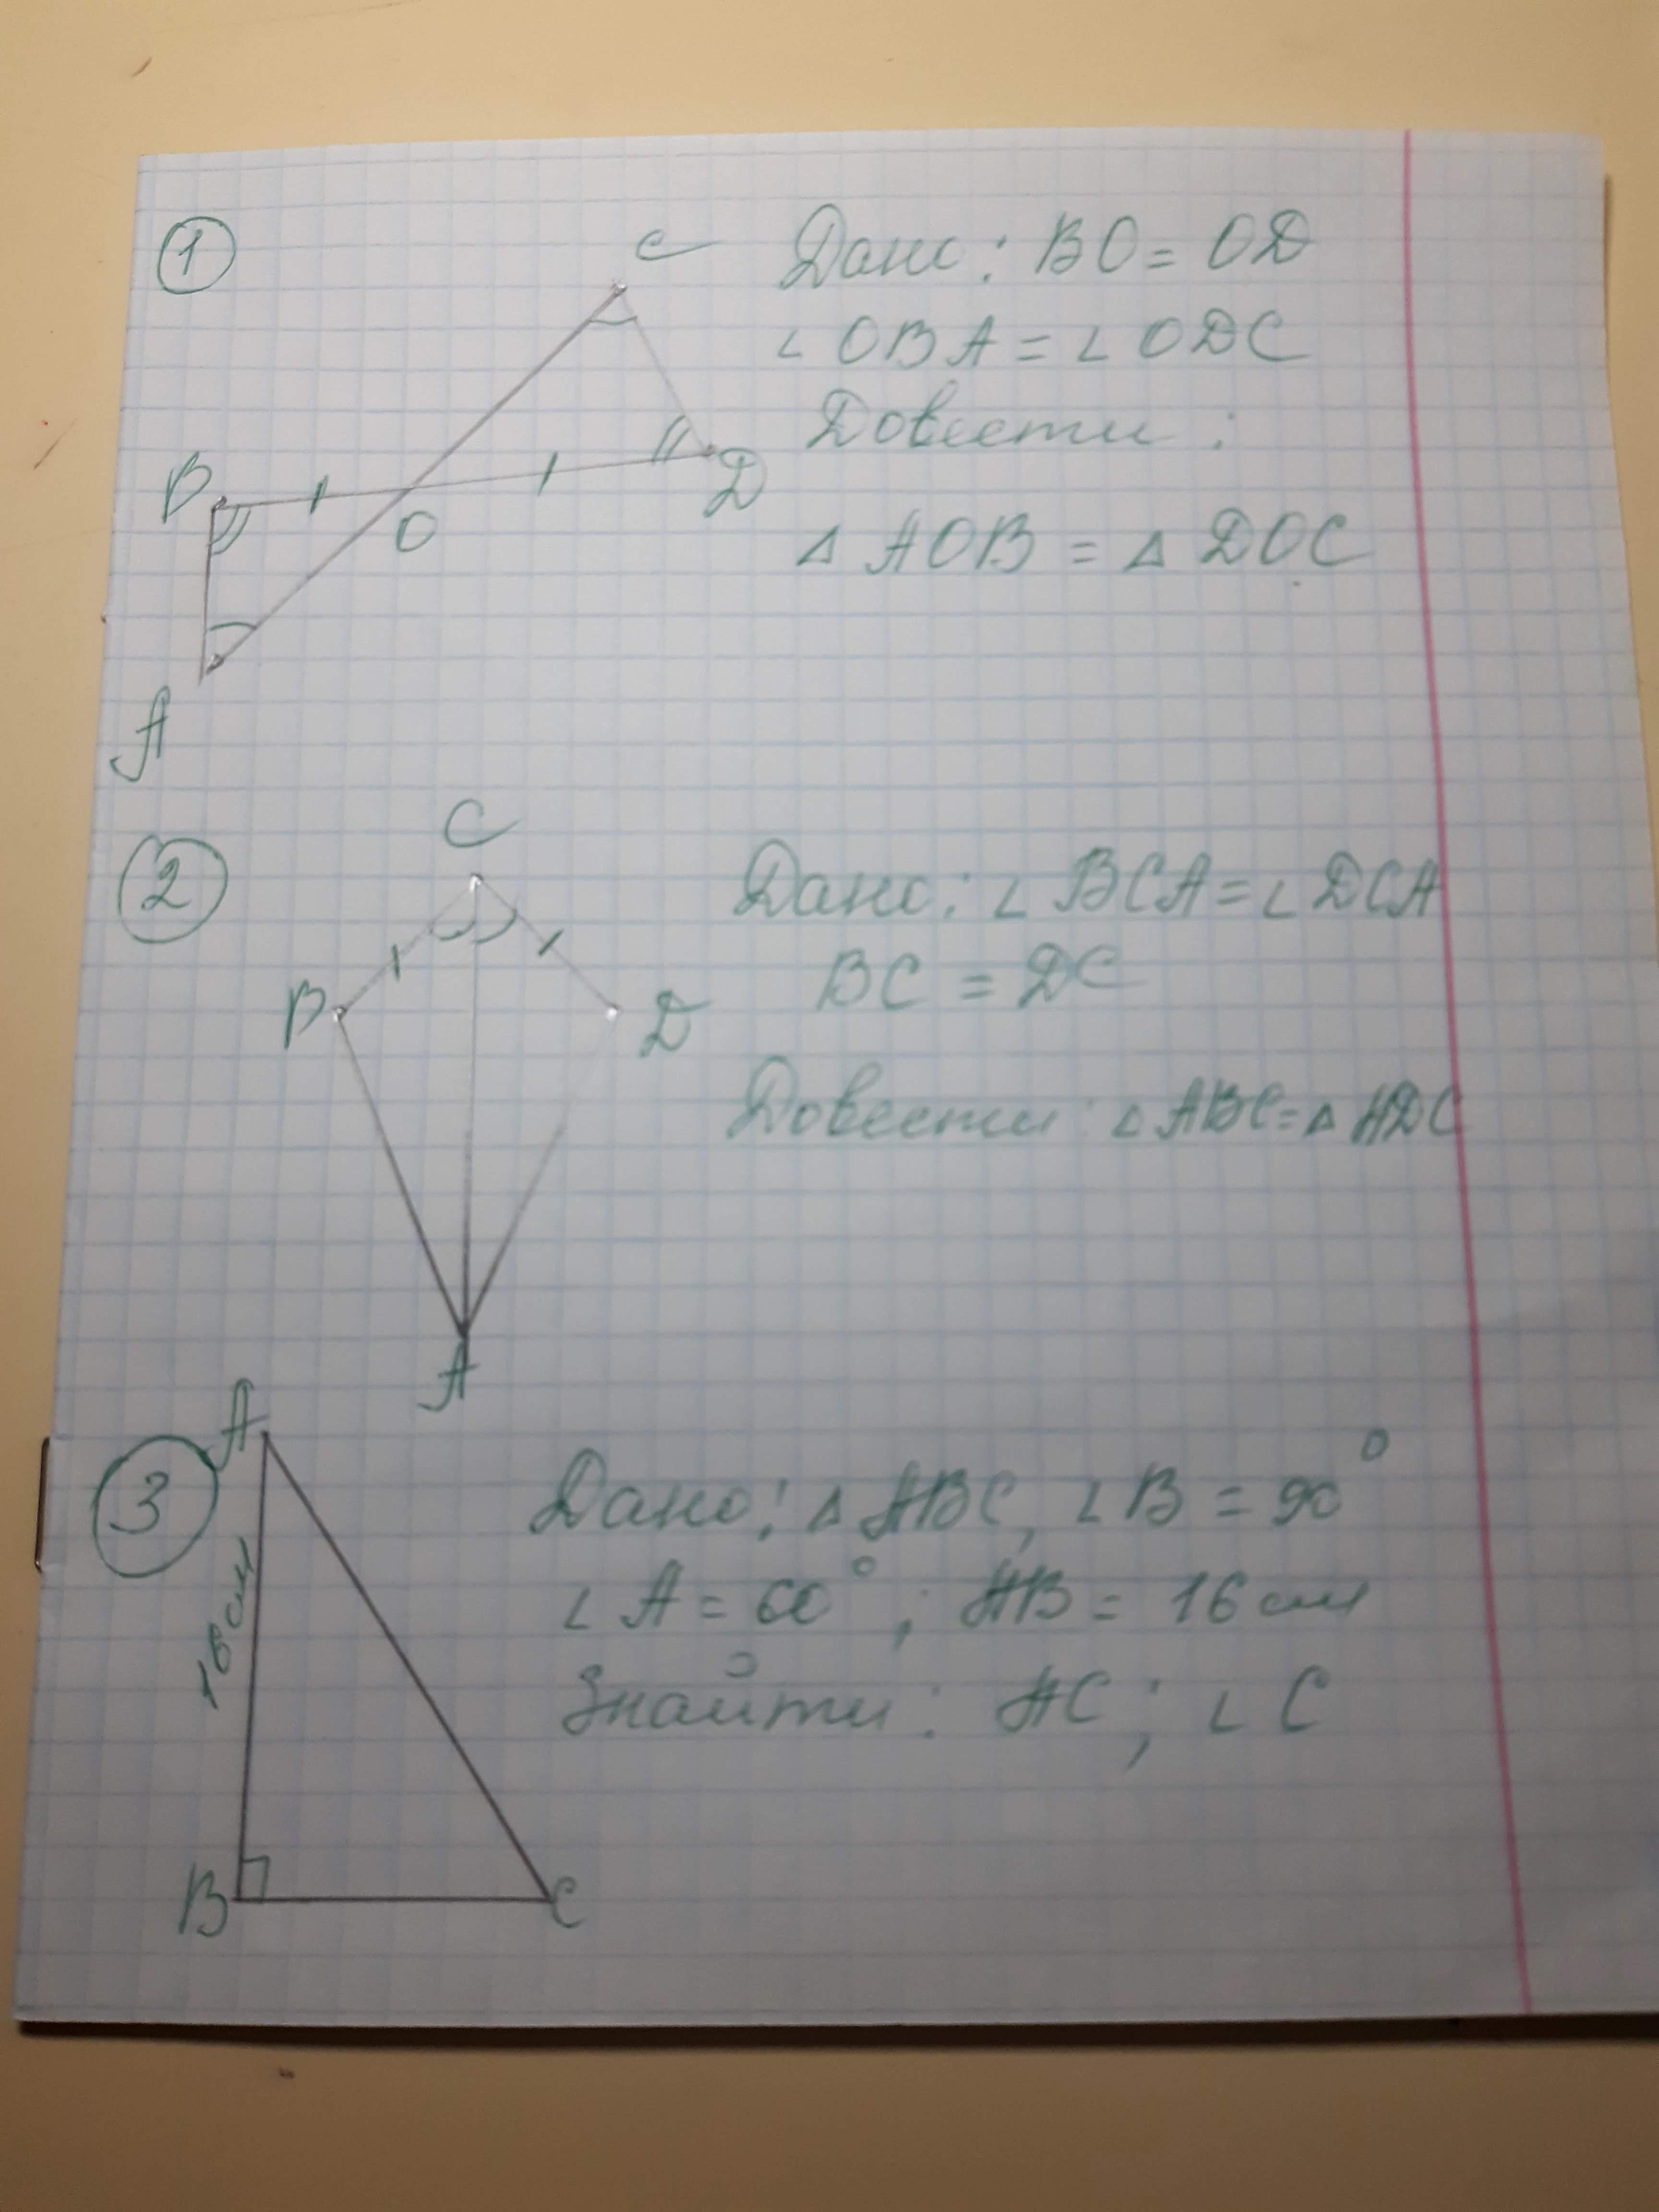 1
C
B
O
D
A
Дано: BO = OD
∠OBA = ∠ODC
Довести:
△ AOB = △ DOC
2
C
B
D
A
Дано: ∠BCA = ∠DCA
BC = DC
Довести: △ABC = △ADC
3
A
B
C
Дано: △ ABC, ∠B = 90°
∠A = 60°; AB = 16 см
Знайти: AC; ∠C